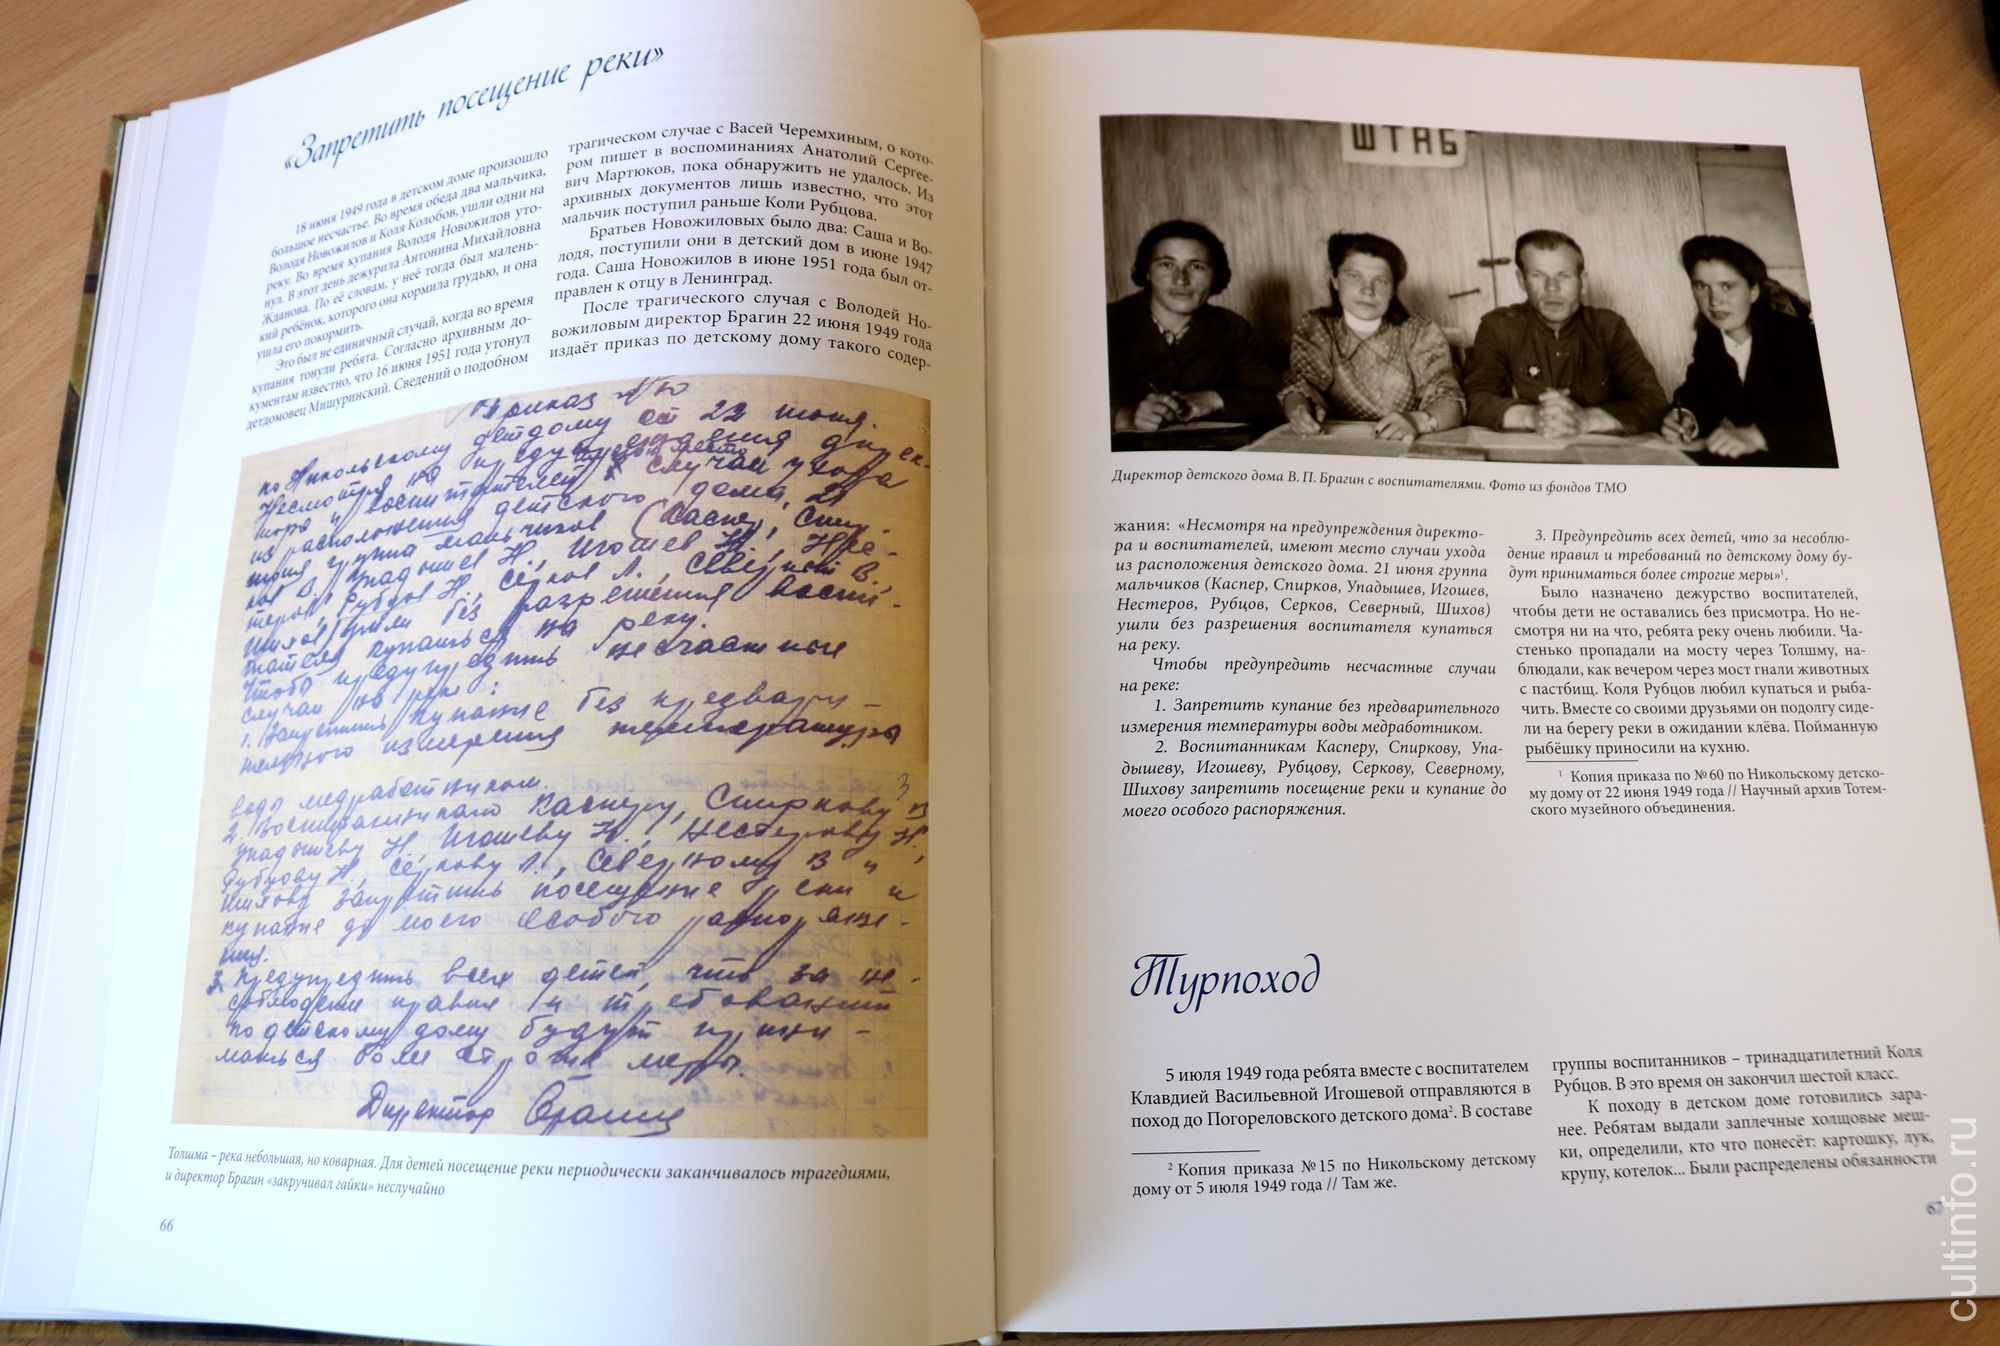 «Запретить посещение реки»
18 июня 1949 года в детском доме произошло
большое несчастье. Во время обеда два мальчика,
Володя Новожилов и Коля Колобов, ушли одни на
реку. Во время купания Володя Новожилов уто-
нул. В этот день дежурила Антонина Михайловна
Жданова. По её словам, у неё тогда был малень-
кий ребёнок, которого она кормила грудью, и она
ушла его покормить.
Это был не единичный случай, когда во время
купания тонули ребята. Согласно архивным до-
кументам известно, что 16 июня 1951 года утонул
детдомовец Мишуринский. Сведений о подобном
трагическом случае с Васей Черемхиным, о кото-
ром пишет в воспоминаниях Анатолий Сергее-
вич Мартюков, пока обнаружить не удалось. Из
архивных документов лишь известно, что этот
мальчик поступил раньше Коли Рубцова.
Братьев Новожиловых было два: Саша и Во-
лодя, поступили они в детский дом в июне 1947
года. Саша Новожилов в июне 1951 года был от-
правлен к отцу в Ленинград.
После трагического случая с Володей Но-
вожиловым директор Брагин 22 июня 1949 года
издаёт приказ по детскому дому такого содер-
Приказ №
по Никольскому детдому от 22 июня.
Несмотря на предупреждения дирек-
тора и воспитателей, место случаи ухода
из расположения детского дома, 21
июня группа мальчиков (Каспер, Спир-
ков В, Упадышев Н, Игошев Н, Нес-
теров, Рубцов Н, Серков Л, Северный В,
Шихов) ушли без разрешения воспи-
тателя купаться на реку.
Чтобы предупредить несчастные
случаи на реке:
1. Запретить купание без предвари-
тельного измерения температуры
воды медработником.
2. Воспитанникам Касперу, Спиркову В
Упадышеву Н, Игошеву Н, Нестерову Н,
Рубцову Н, Серкову Л, Северному В и
Шихову запретить посещение реки и
купание до моего особого распоряже-
ния.
3. Предупредить всех детей, что за не-
соблюдение правил и требований
по детскому дому будут прини-
маться более строгие меры.
Директор Брагин
Толшма – река небольшая, но коварная. Для детей посещение реки периодически заканчивалось трагедиями,
и директор Брагин «закручивал гайки» неслучайно
66
ШТАБ
Директор детского дома В. П. Брагин с воспитателями. Фото из фондов ТМО
жания: «Несмотря на предупреждения директо-
ра и воспитателей, имеют место случаи ухода
из расположения детского дома. 21 июня группа
мальчиков (Каспер, Спирков, Упадышев, Игошев,
Нестеров, Рубцов, Серков, Северный, Шихов)
ушли без разрешения воспитателя купаться
на реку.
Чтобы предупредить несчастные случаи
на реке:
1. Запретить купание без предварительного
измерения температуры воды медработником.
2. Воспитанникам Касперу, Спиркову, Упа-
дышеву, Игошеву, Рубцову, Серкову, Северному,
Шихову запретить посещение реки и купание до
моего особого распоряжения.
3. Предупредить всех детей, что за несоблю-
дение правил и требований по детскому дому бу-
дут приниматься более строгие меры»¹.
Было назначено дежурство воспитателей,
чтобы дети не оставались без присмотра. Но не-
смотря ни на что, ребята реку очень любили. Ча-
стенько пропадали на мосту через Толшму, на-
блюдали, как вечером через мост гнали животных
с пастбищ. Коля Рубцов любил купаться и рыба-
чить. Вместе со своими друзьями он подолгу сиде-
ли на берегу реки в ожидании клёва. Пойманную
рыбёшку приносили на кухню.
¹ Копия приказа по №60 по Никольскому детско-
му дому от 22 июня 1949 года // Научный архив Тотем-
ского музейного объединения.
Турпоход
5 июля 1949 года ребята вместе с воспитателем
Клавдией Васильевной Игошевой отправляются в
поход до Погореловского детского дома². В составе
² Копия приказа №15 по Никольскому детскому
дому от 5 июля 1949 года // Там же.
группы воспитанников – тринадцатилетний Коля
Рубцов. В это время он закончил шестой класс.
К походу в детском доме готовились зара-
нее. Ребятам выдали заплечные холщовые меш-
ки, определили, кто что понесёт: картошку, лук,
крупу, котелок... Были распределены обязанности
67
cultinfo.ru